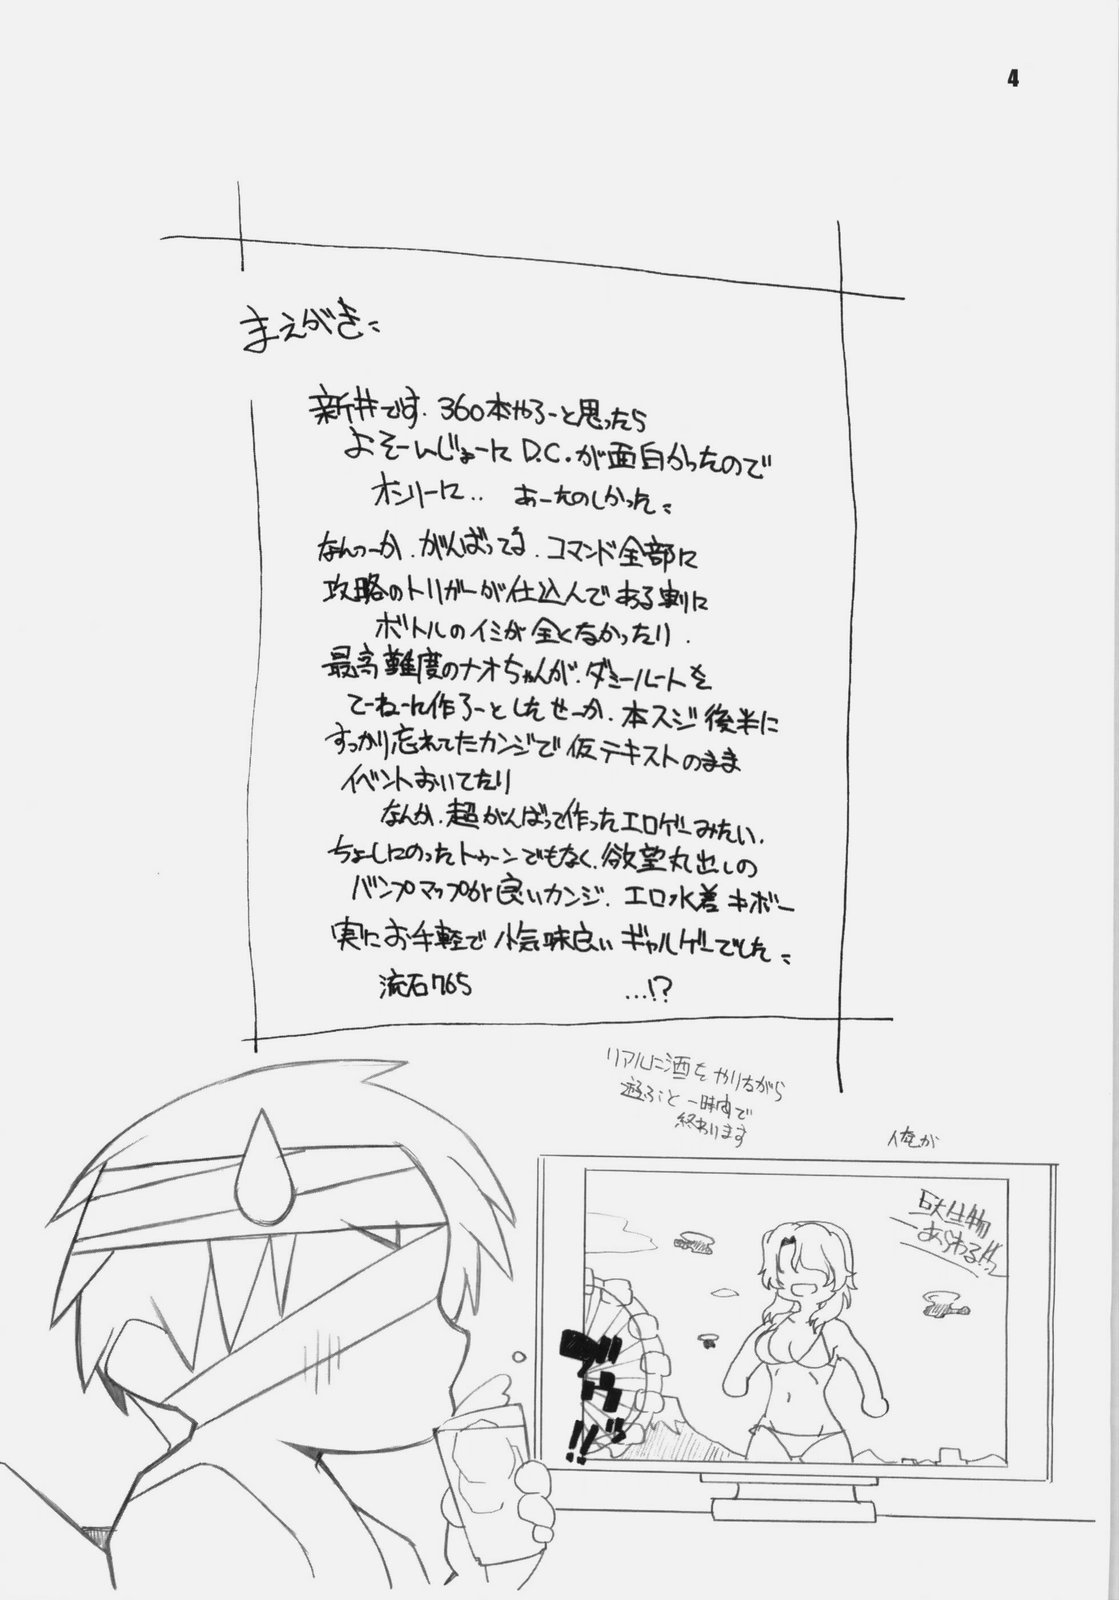 4
まえがき
新井です. 360本やろーと思ったら
よそーいじょーに D.C. が面白かったので
オンリーに.. あーたのしかった
なんつーか. がんばってる. コマンド全部に
攻略のトリガーが仕込んである割に
ボトルのイミが全くなかったり.
最高難度のナオちゃんが. ダミールートを
てーねーに作ろーとしたせーか. 本スジ後半に
すっかり忘れてたカンジで仮テキストのまま
イベントおいてたり
なんか. 超がんばって作ったエロゲーみたい.
ちょーしにのったトゥーンでもなく. 欲望丸出しの
バンプマップが良いカンジ. エロ水着キボー
実にお手軽で小気味良いギャルゲーでした
流石765 ...!?
リアルに酒をやりながら
遊ぶと一時間で
終わります
俺が
あらわる!!